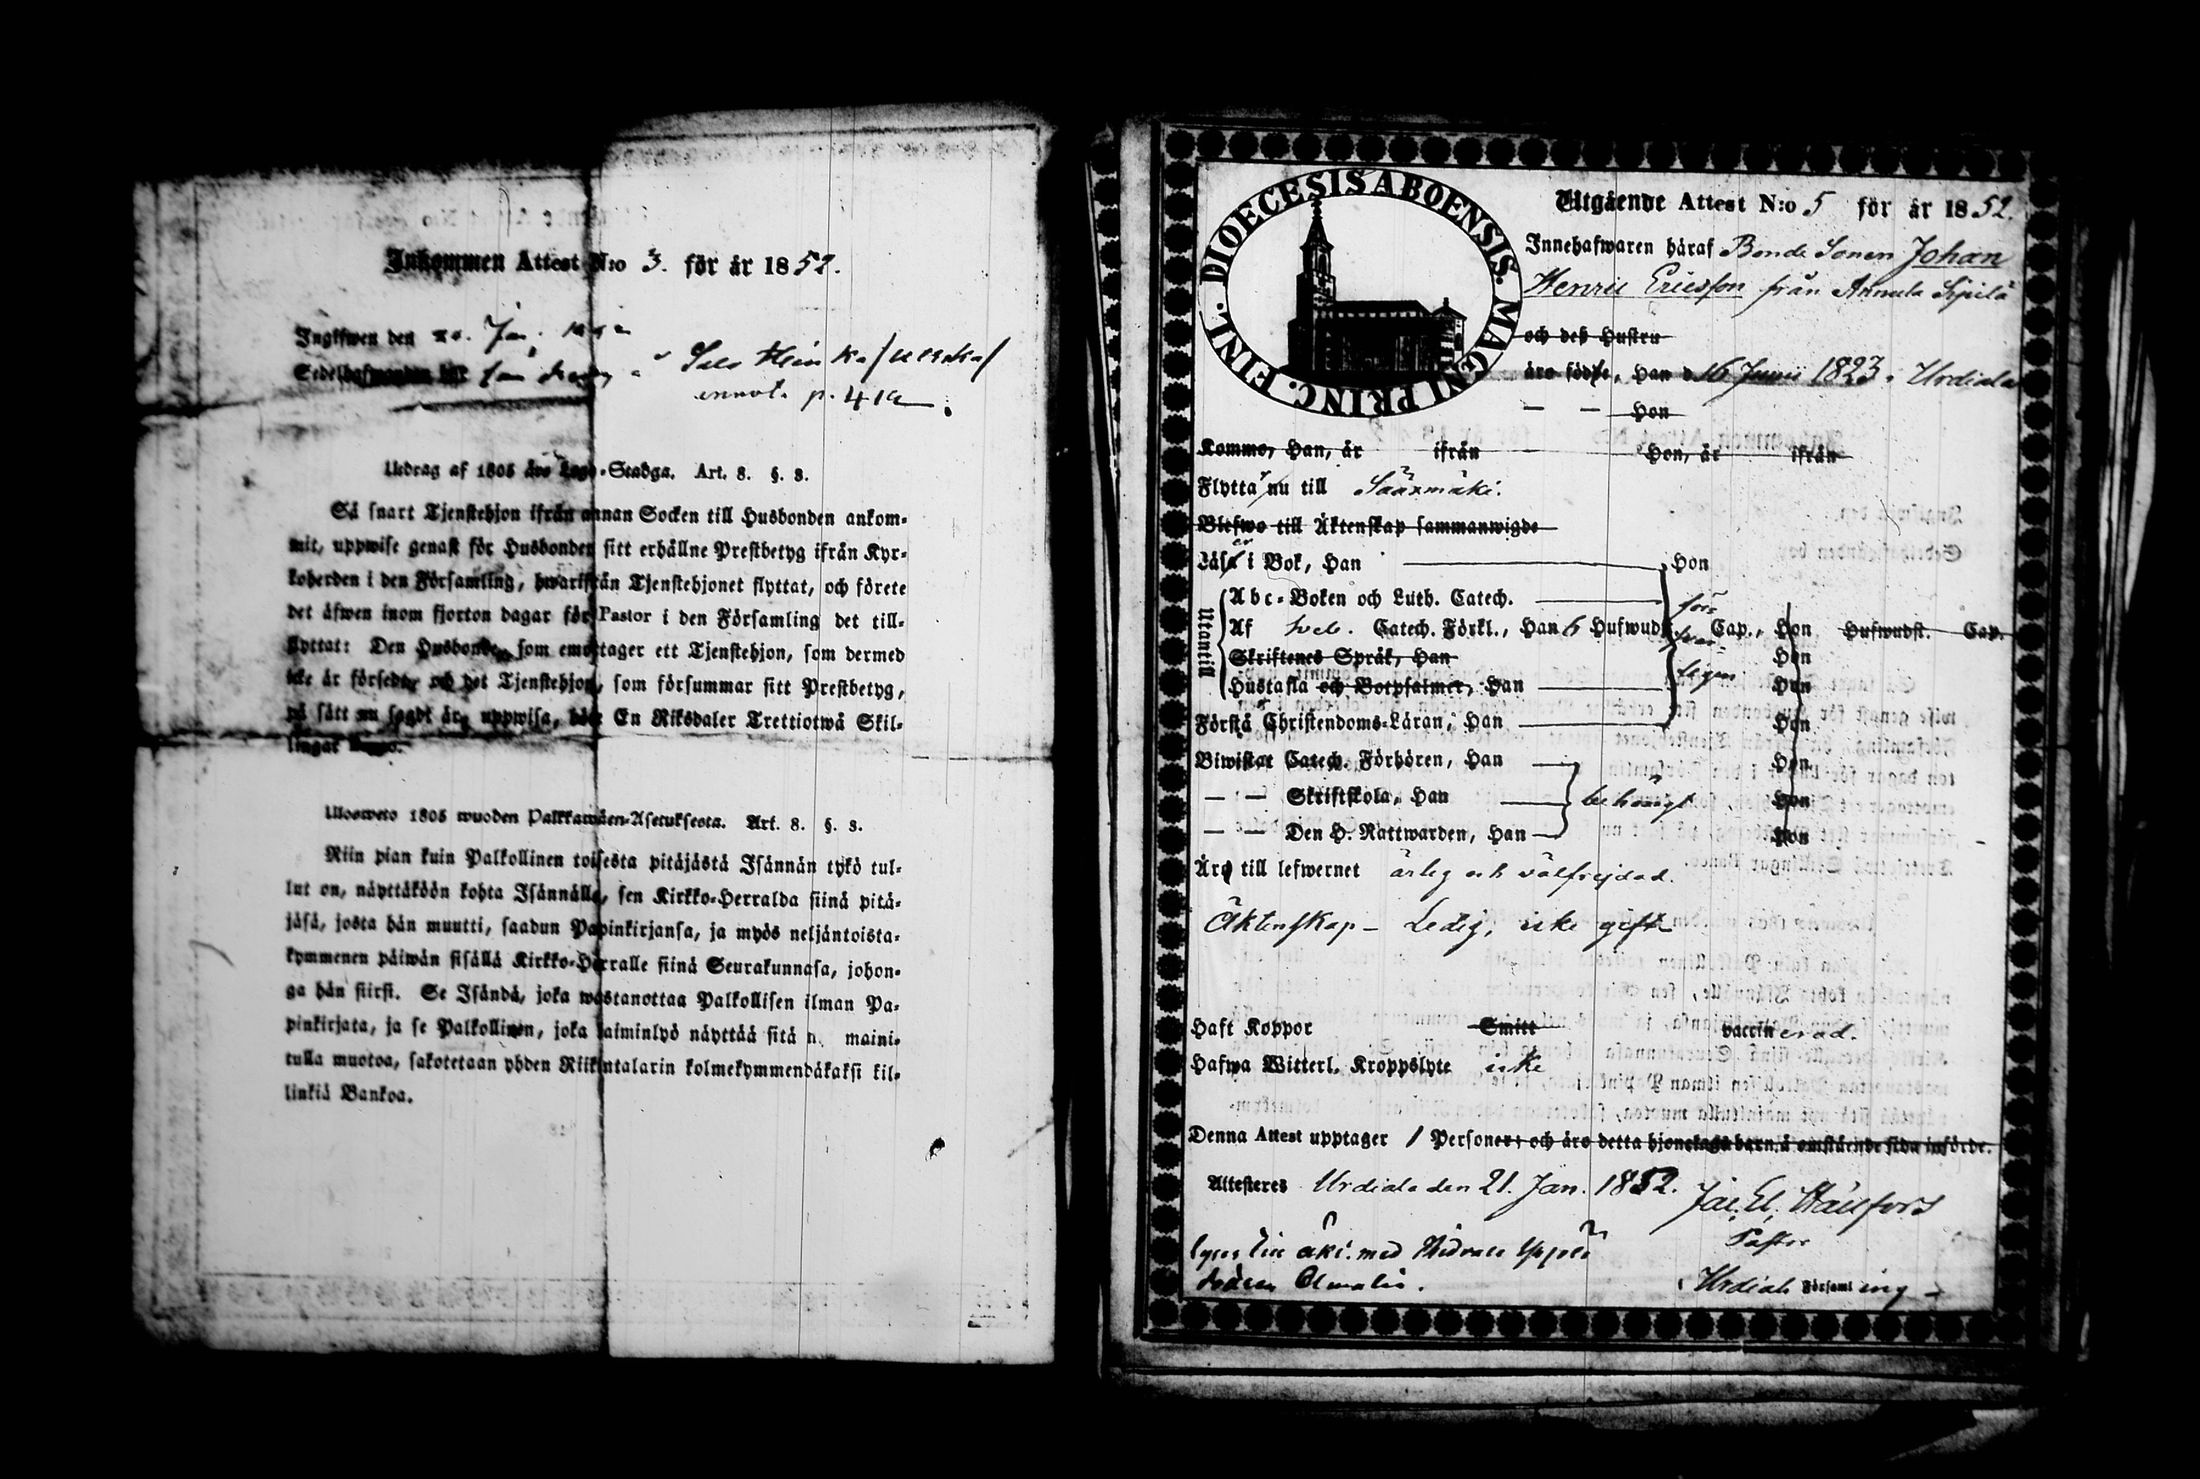 Inkommen Attest N:o 3. för år 1852.
Ingifwen den 20. Jan. 1852
Sedelhafwanden
annot. p. 412
Utdrag af 1805 års Lego-Stadga. Art. 8. §. 3.
Så snart Tjenstehjon ifrån annan Socken till Husbonden ankom-
mit, uppwise genast för Husbonden sitt erhållne Prestbetyg ifrån Kyr-
koherden i den Församling, hwarifrån Tjenstehjonet flyttat, och förete
det åfwen inom fjorton dagar för Pastor i den Församling det till-
flyttat: Den Husbonde, som emottager ett Tjenstehjon, som dermed
icke är försedt, och det Tjenstehjon, som försummar sitt Prestbetyg,
på sått nu sagdt är, uppwisa, böte En Riksdaler Trettiotwå Skil-
lingar Banco.
Ulosweto 1805 wuoden Palkkawäen-Asetuksesta. Art. 8. §. 3.
Niin pian kuin Palkollinen toisesta pitäjästä Isännän tykö tul-
lut on, näyttäköön kohta Isännälle, sen Kirkko-Herralda siinä pitä-
jäsä, josta hän muutti, saadun Papinkirjansa, ja myös neljäntoista-
kymmenen päiwän sisällä Kirkko-Herralle siinä Seurakunnasa, johon-
ga hän siirsi. Se Isändä, joka wastanottaa Palkollisen ilman Pa-
pinkirjata, ja se Palkollinen, joka laiminlyö näyttää sitä n maini-
tulla muotoa, sakotetaan yhden Riikintalarin kolmekymmendäkaksi kil-
linkiä Bankoa.
FINL. DIOECESIS ABOENSIS. MAGNI PRINC.
Utgående Attest N:o 5 för år 1852.
Innehafwaren häraf Bonde Sonen Johan
Henric Ericsson från Annula Sipilä
och deß Hustru
äro födde, Han d 16 Junii 1823 i Urdiala
— — Hon
Kommo, Han, år ifrån Hon, år ifrån
Flyttar nu till Sääxmäki.
Blefwo till Äktenskap sammanwigde
Läser i Bok, Han Hon
Utantill
Abc-Boken och Luth. Catech.
Af Catech. Förkl., Han 6 Hufwudst. Cap., Hon Hufwudst. Cap.
Skriftenes Språk, Han Hon
Hustafla och Botpsalmer, Han Hon
Förstå Christendoms-Läran, Han Hon
försvarligen
Biwistat Catech. Förhören, Han Hon
— — Skriftskola, Han behörigt Hon
— — Den H. Nattwarden, Han Hon
Äro till lefwernet ärlig och välfrejdad.
Äktenskap - Ledig, icke gift
Haft Koppor Smitt vaccinerad.
Hafwa Witterl. Kroppslyte icke
Denna Attest upptager 1 Personer; och äro detta hjonelags barn å omstående sida införde.
Attesteres Urdiala den 21. Jan. 1852. Jac. El. Hällfors
Pastor
Urdiala Församling